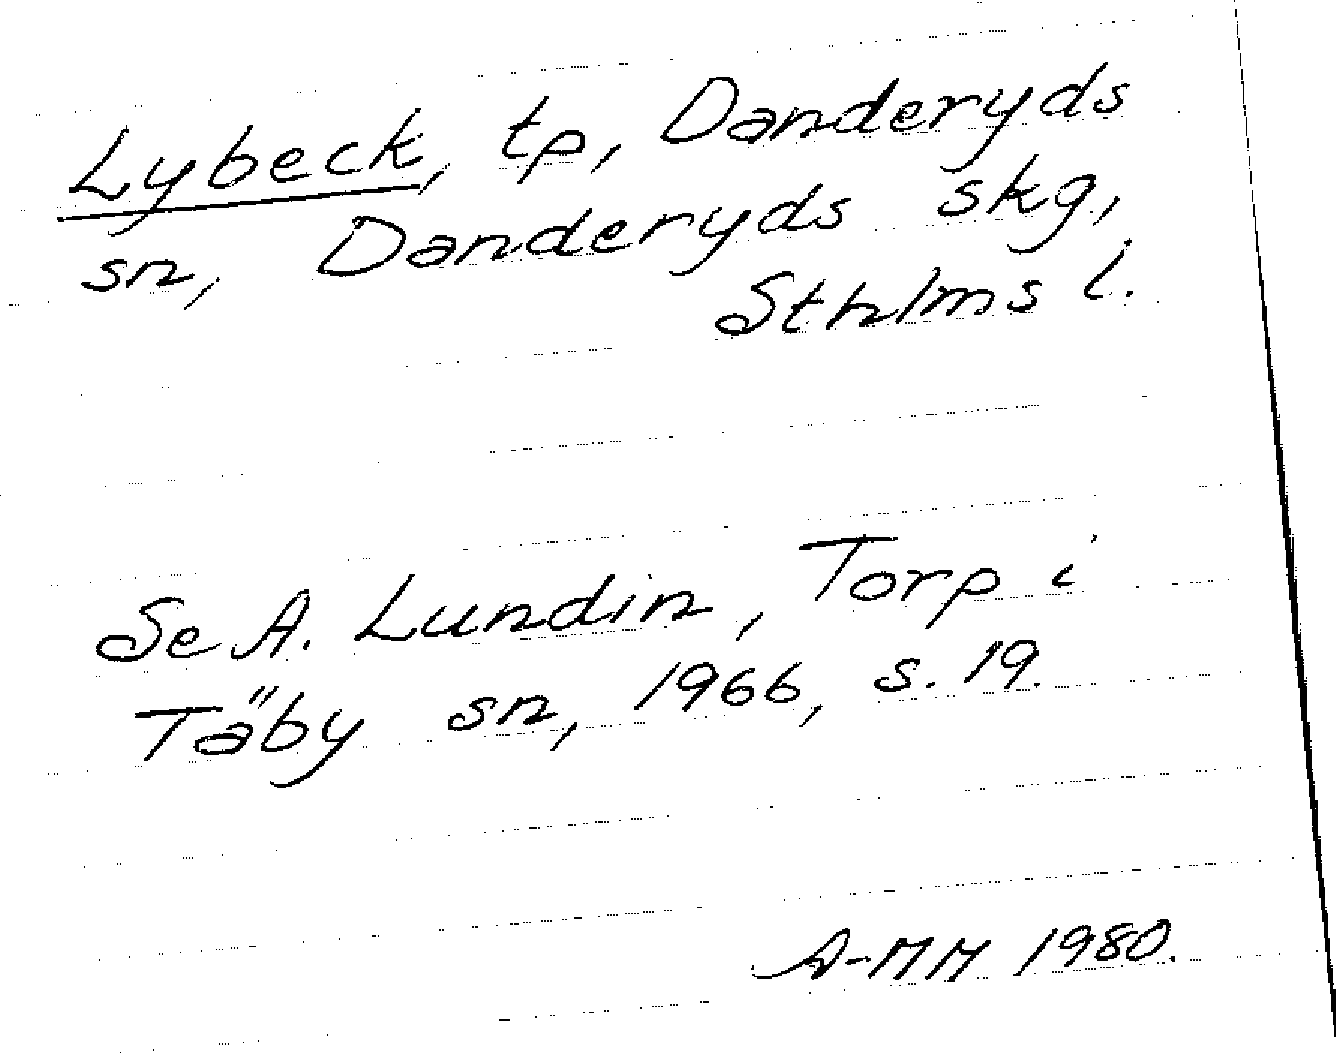 Lybeck, tp, Danderyds
sn, Danderyds skg,
Sthlms l.
Se A. Lundin, Torp i
Täby sn, 1966, s. 19.
A-MM 1980.